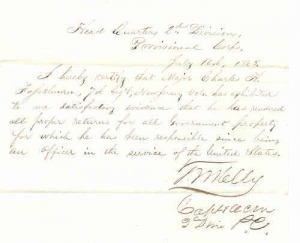 Head Quarters 2d Division,
Provisional Corps,
July 16th, 1865
I hereby certify that Major Charles H.
7th Regt, New Jersey vols has exhibited
to me satisfactory evidence that he has rendered
all proper returns for all Government property
for which he has been responsible since being
an Officer in the service of the United States.
Capt & ACM
2 Div P.C.